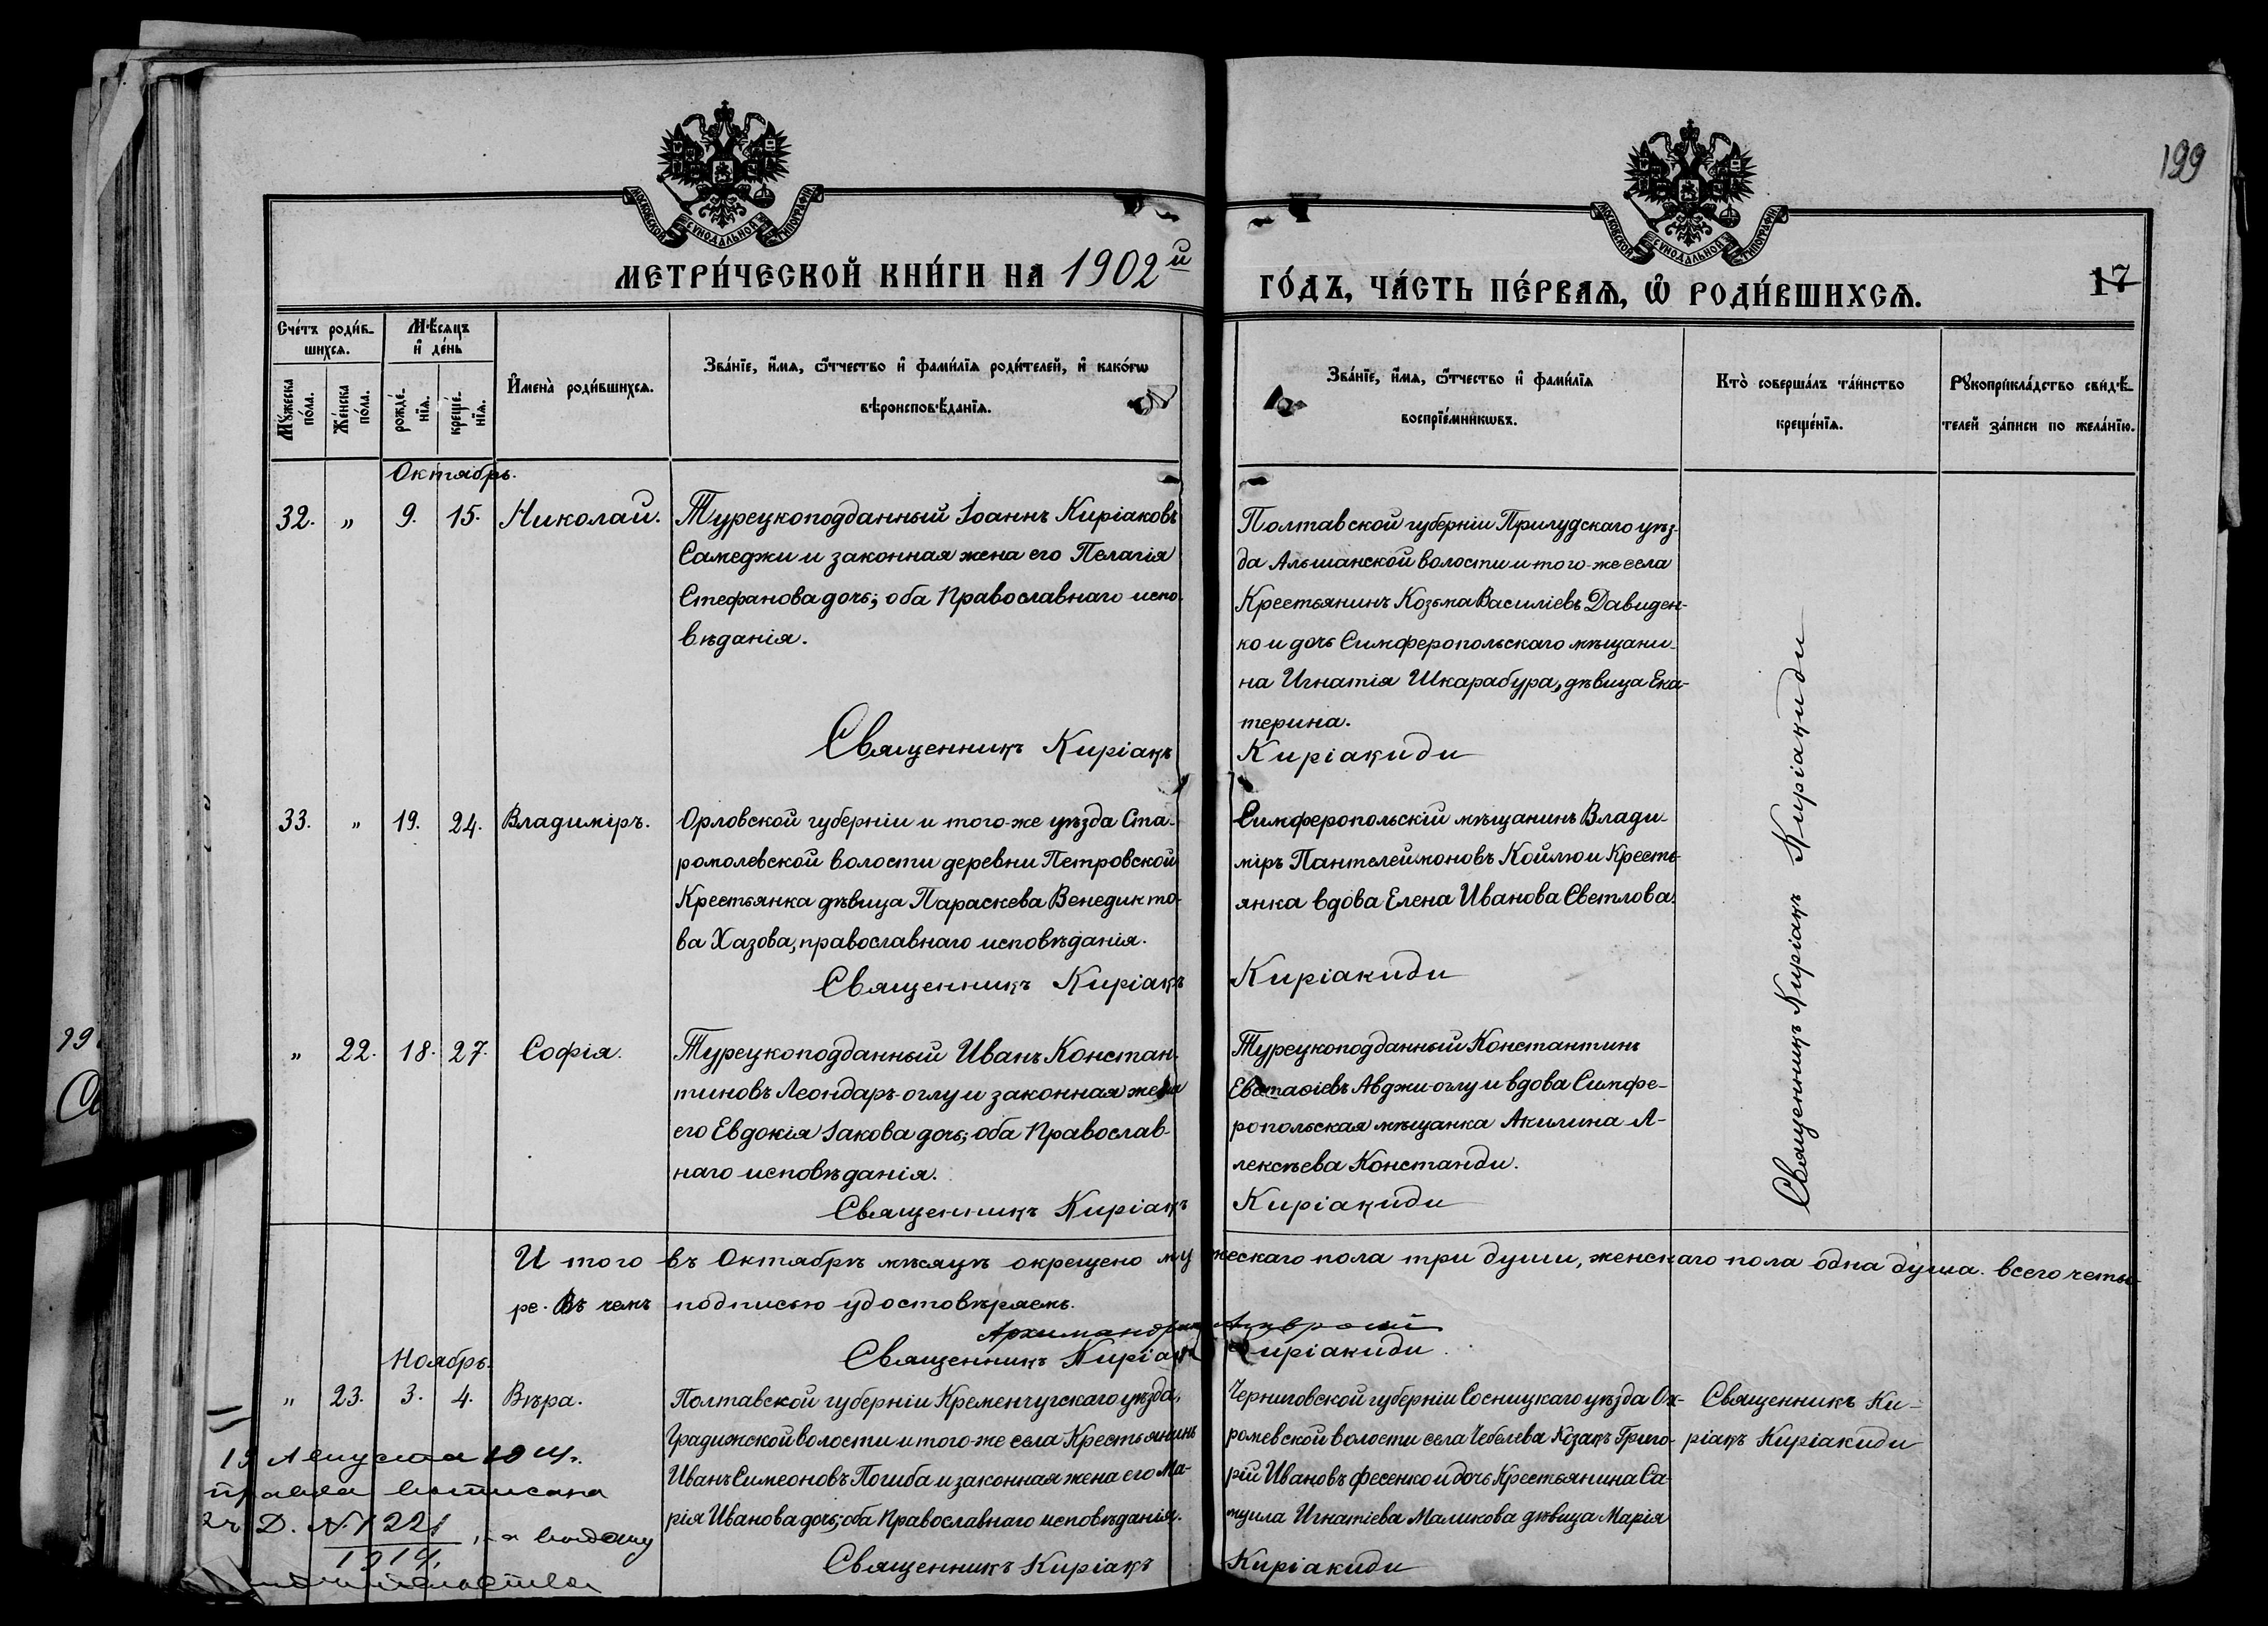 199
МОСКОВСКОЙ СѴНОДАЛЬНОЙ ТИПОГРАФІИ
МОСКОВСКОЙ СѴНОДАЛЬНОЙ ТИПОГРАФІИ
МЕТРИ́ЧЕСКОЙ КНИ́ГИ НА 1902й
ГО́ДЪ, ЧА́СТЬ ПЕ́РВАѦ, Ѽ РОДИ́ВШИХСѦ.
17
Сче́тъ роди́в-
шихсѧ.
Мѣ́сяцъ
и҆ де́нь
Мꙋ́жеска по́ла.
Же́нска по́ла.
рожде́-
нїѧ.
креще́-
нїѧ.
И҆мена̀ роди́вшихсѧ.
Зва́нїе, и҆́мѧ, ѻ҆́тчество и҆ фами́лїѧ роди́телей, и҆ како́гѡ
вѣроисповѣ́данїѧ.
Зва́нїе, и҆́мѧ, ѻ҆́тчество и҆ фами́лїѧ
воспрїе́мникѡвъ.
Кто̀ соверша́лъ та́инство
креще́нїѧ.
Рꙋкоприкла́дство свидѣ́-
телей за́писи по жела́нїю.
Октябрь.
32. „ 9. 15. Николай.
Турецкоподданный Іоаннъ Киріаковъ
Самеджи и законная жена его Пелагія
Стефанова дочь; оба Православнаго испо-
вѣданія.
Полтавской губерніи Прилудскаго уѣз-
да Альшанской волости и того-же села
Крестьянинъ Козьма Василіевъ Давиден-
ко и дочь Симферопольскаго мѣщани-
на Игнатія Шкарабура, дѣвица Ека-
терина.
Священникъ Киріакъ Киріакиди
33. „ 19. 24. Владиміръ.
Орловской губерніи и того-же уѣзда Ста-
ромолевской волости деревни Петровской
Крестьянка дѣвица Параскева Венедикто-
ва Хазова, православнаго исповѣданія.
Симферопольскій мѣщанинъ Влади-
міръ Пантелеймоновъ Койлю и Кресть-
янка вдова Елена Иванова Светлова.
Священникъ Киріакъ Киріакиди
„ 22. 18. 27. Софія.
Турецкоподданный Иванъ Констан-
тиновъ Леондаръ-оглу и законная жена
его Евдокія Іакова дочь; оба Православ-
наго исповѣданія.
Турецкоподданный Константинъ
Евстаѳіевъ Авджи-оглу и вдова Симфе-
ропольская мѣщанка Акилина А-
лексѣева Константи.
Священникъ Киріакъ Киріакиди
Священникъ Киріакъ Киріакиди
И того въ Октябрѣ мѣсяцѣ окрещено мужескаго пола три души, женскаго пола одна душа. всего четы-
ре. Въ чемъ подписью удостовѣряемъ.
Архимандритъ
Священникъ Киріакъ Киріакиди.
Ноябрь.
„ 23. 3. 4. Вѣра.
Полтавской губерніи Кременчугскаго уѣзда,
Градижской волости и того-же села Крестьянинъ
Иванъ Симеоновъ Погиба и законная жена его Ма-
рія Иванова дочь; оба Православнаго исповѣданія.
Черниговской губерніи Сосницкаго уѣзда Ох-
ромевской волости села Чебелева Козакъ Григо-
рій Ивановъ Фесенко и дочь Крестьянина Са-
муила Игнатіева Маликова дѣвица Марія
Священникъ Ки-
ріакъ Киріакиди
Священникъ Киріакъ Киріакиди
19 Августа
Д. № 1221
1914